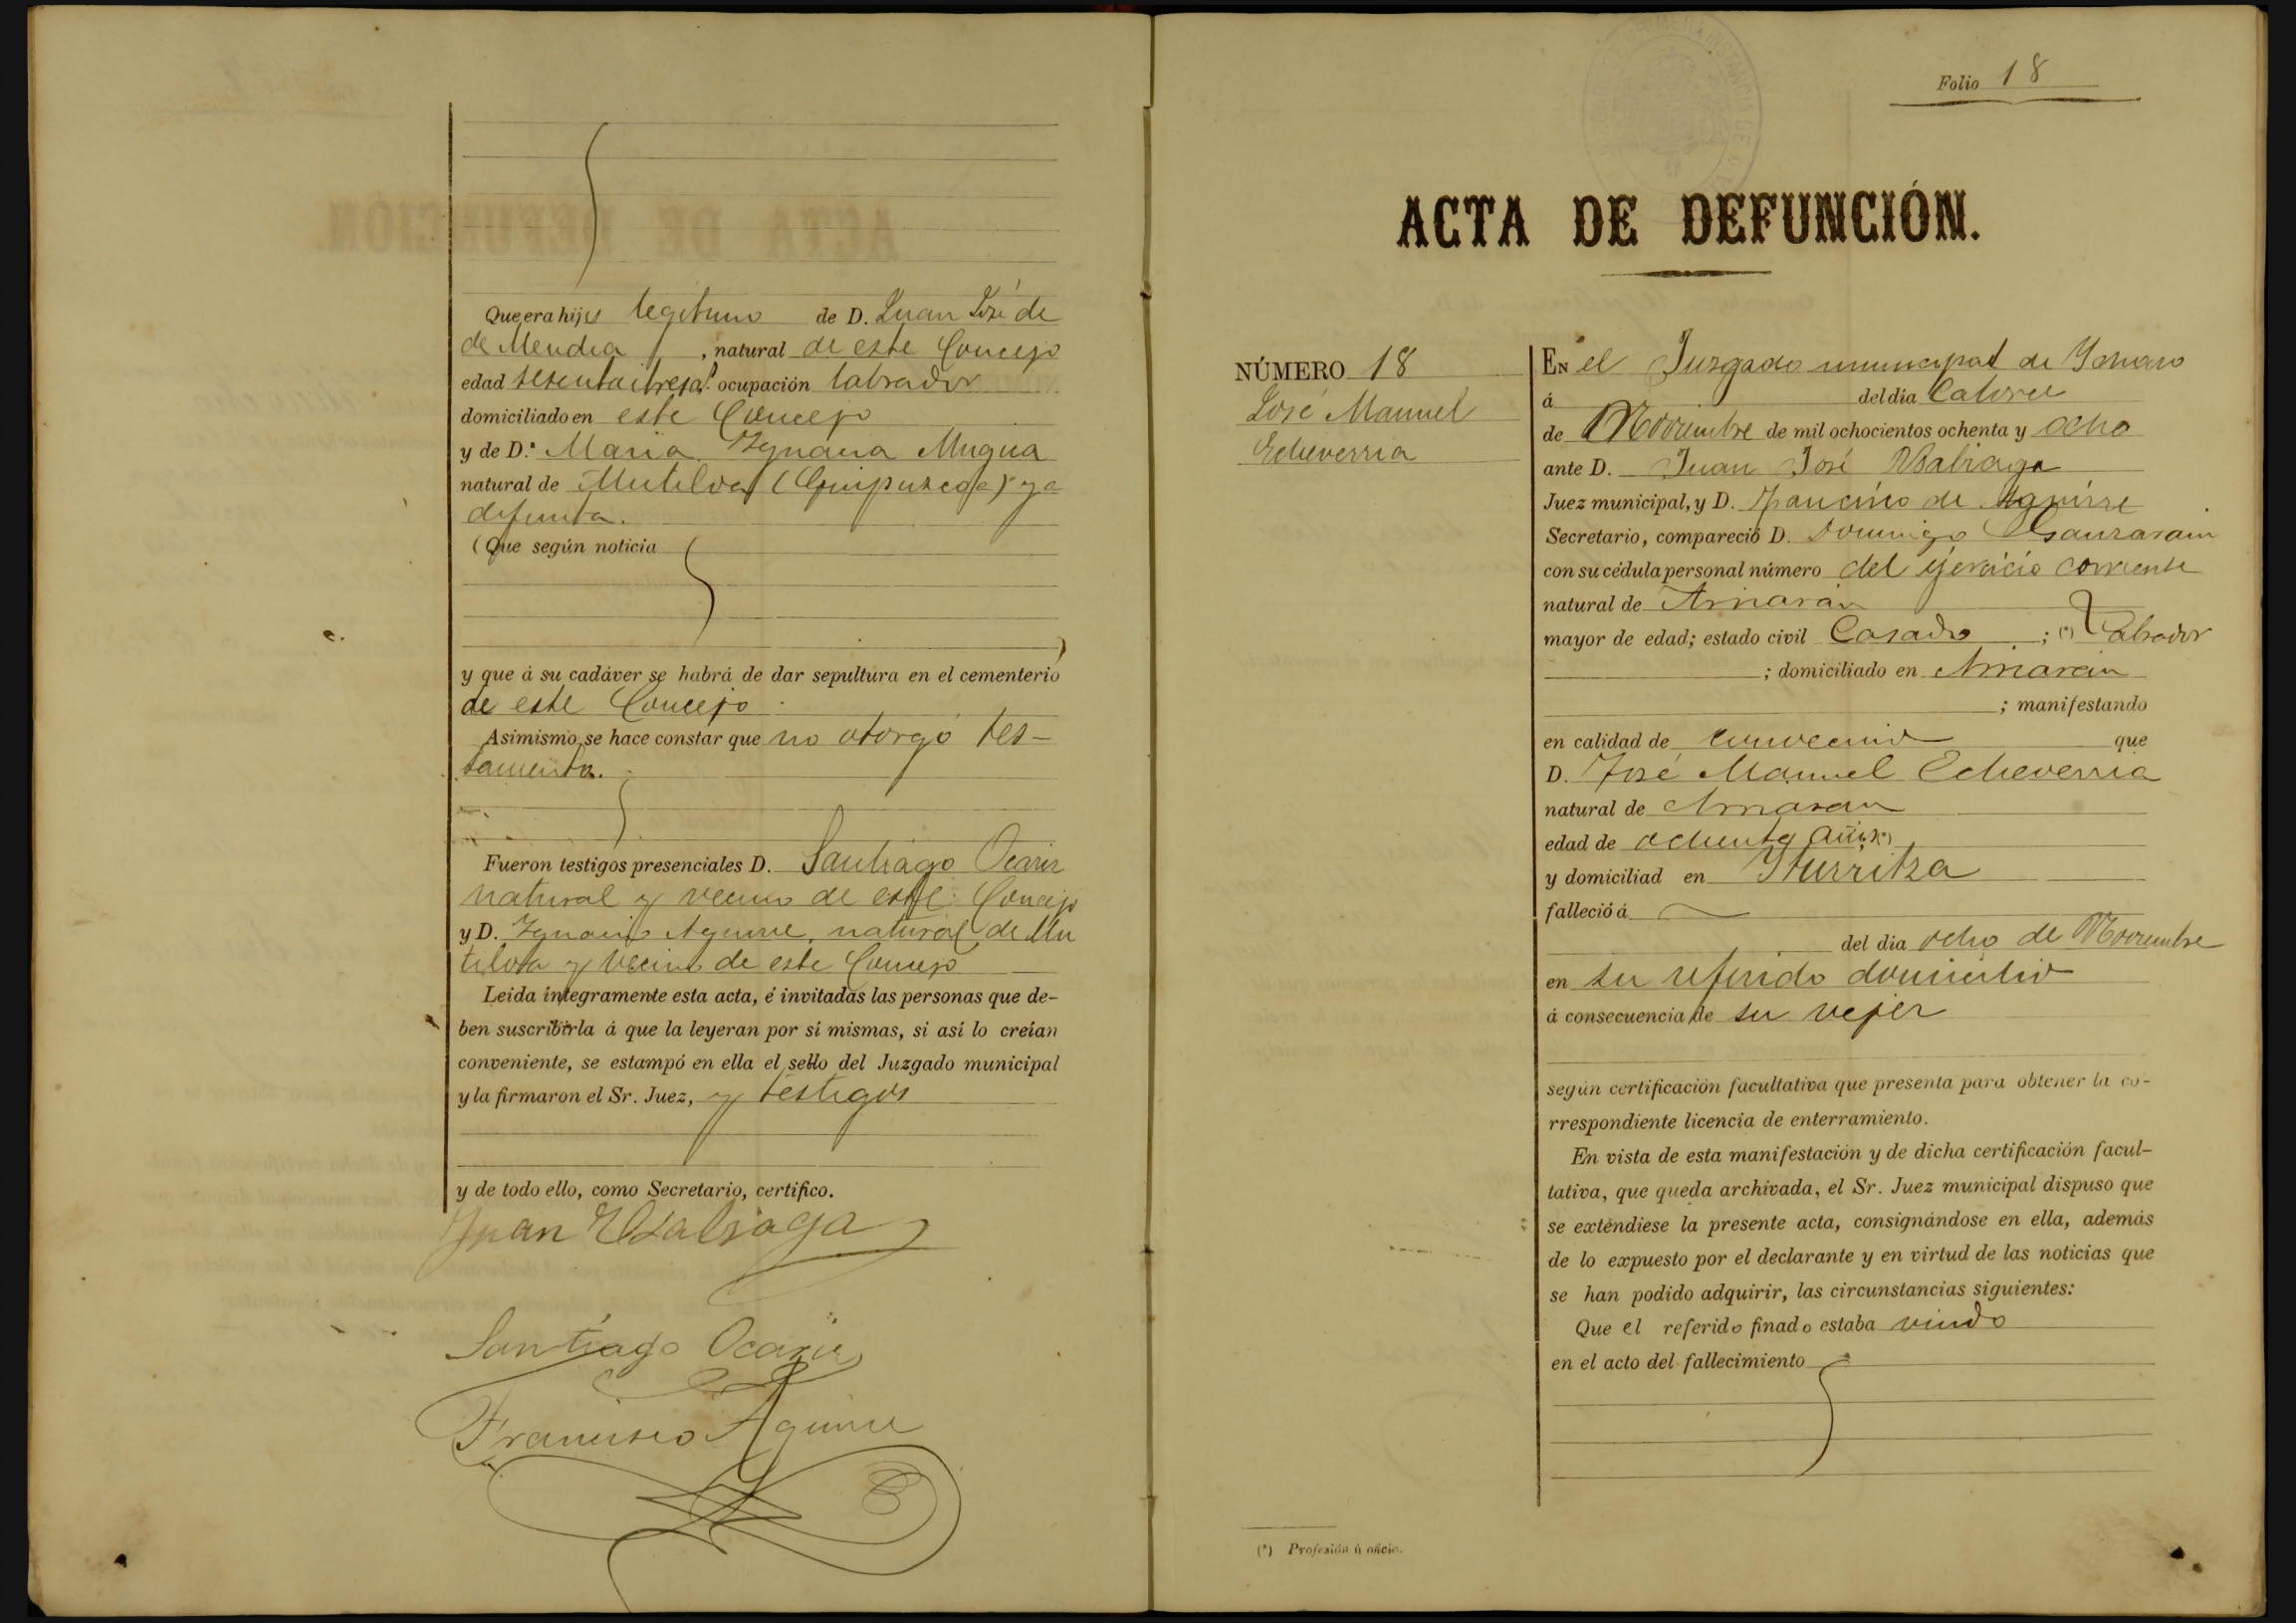 Que era hijo legitimo de D. Juan José de
de Mendia, natural de este Concejo
edad sesenta i tres a.s ocupación labrador
domiciliado en este Concejo
y de D.ª Maria Ygnacia Mugua
natural de Mutiloa (Guipuzcoa) ya
difunta.
(Que según noticia
)
y que á su cadáver se habrá de dar sepultura en el cementerio
de este Concejo.
Asimismo se hace constar que no otorgó tes-
tamento.
Fueron testigos presenciales D. Santiago Ocariz
natural y vecino de este Concejo
y D. Ygnacio Aguirre, natural de Mu
tiloa y vecino de este Concejo
Leida íntegramente esta acta, é invitadas las personas que de-
ben suscribirla á que la leyeran por sí mismas, si así lo creían
conveniente, se estampó en ella el sello del Juzgado municipal
y la firmaron el Sr. Juez, y testigos
y de todo ello, como Secretario, certifico.
Juan Usabiaga
Santiago Ocariz
Francisco Aguirre
Folio 18
ACTA DE DEFUNCIÓN.
NÚMERO 18
José Manuel
Echeverria
EN el Juzgado municipal de
á del día Catorce
de Noviembre de mil ochocientos ochenta y ocho
ante D. Juan José Usabiaga
Juez municipal, y D. Francisco de Aguirre
Secretario, compareció D. Domingo Ganzarain
con su cédula personal número del ejercicio corriente
natural de Arriarán
mayor de edad; estado civil Casado; (*) Labrador
; domiciliado en Arriarán
; manifestando
en calidad de convecino que
D. José Manuel Echeverria
natural de Arriaran
edad de ochenta años (*)
y domiciliad en Yturritza
falleció á
del día ocho de Noviembre
en su referido domicilio
á consecuencia de su vejez
según certificación facultativa que presenta para obtener la co-
rrespondiente licencia de enterramiento.
En vista de esta manifestación y de dicha certificación facul-
tativa, que queda archivada, el Sr. Juez municipal dispuso que
se exténdiese la presente acta, consignándose en ella, además
de lo expuesto por el declarante y en virtud de las noticias que
se han podido adquirir, las circunstancias siguientes:
Que el referido finado estaba viudo
en el acto del fallecimiento
(*) Profesión ú oficio.